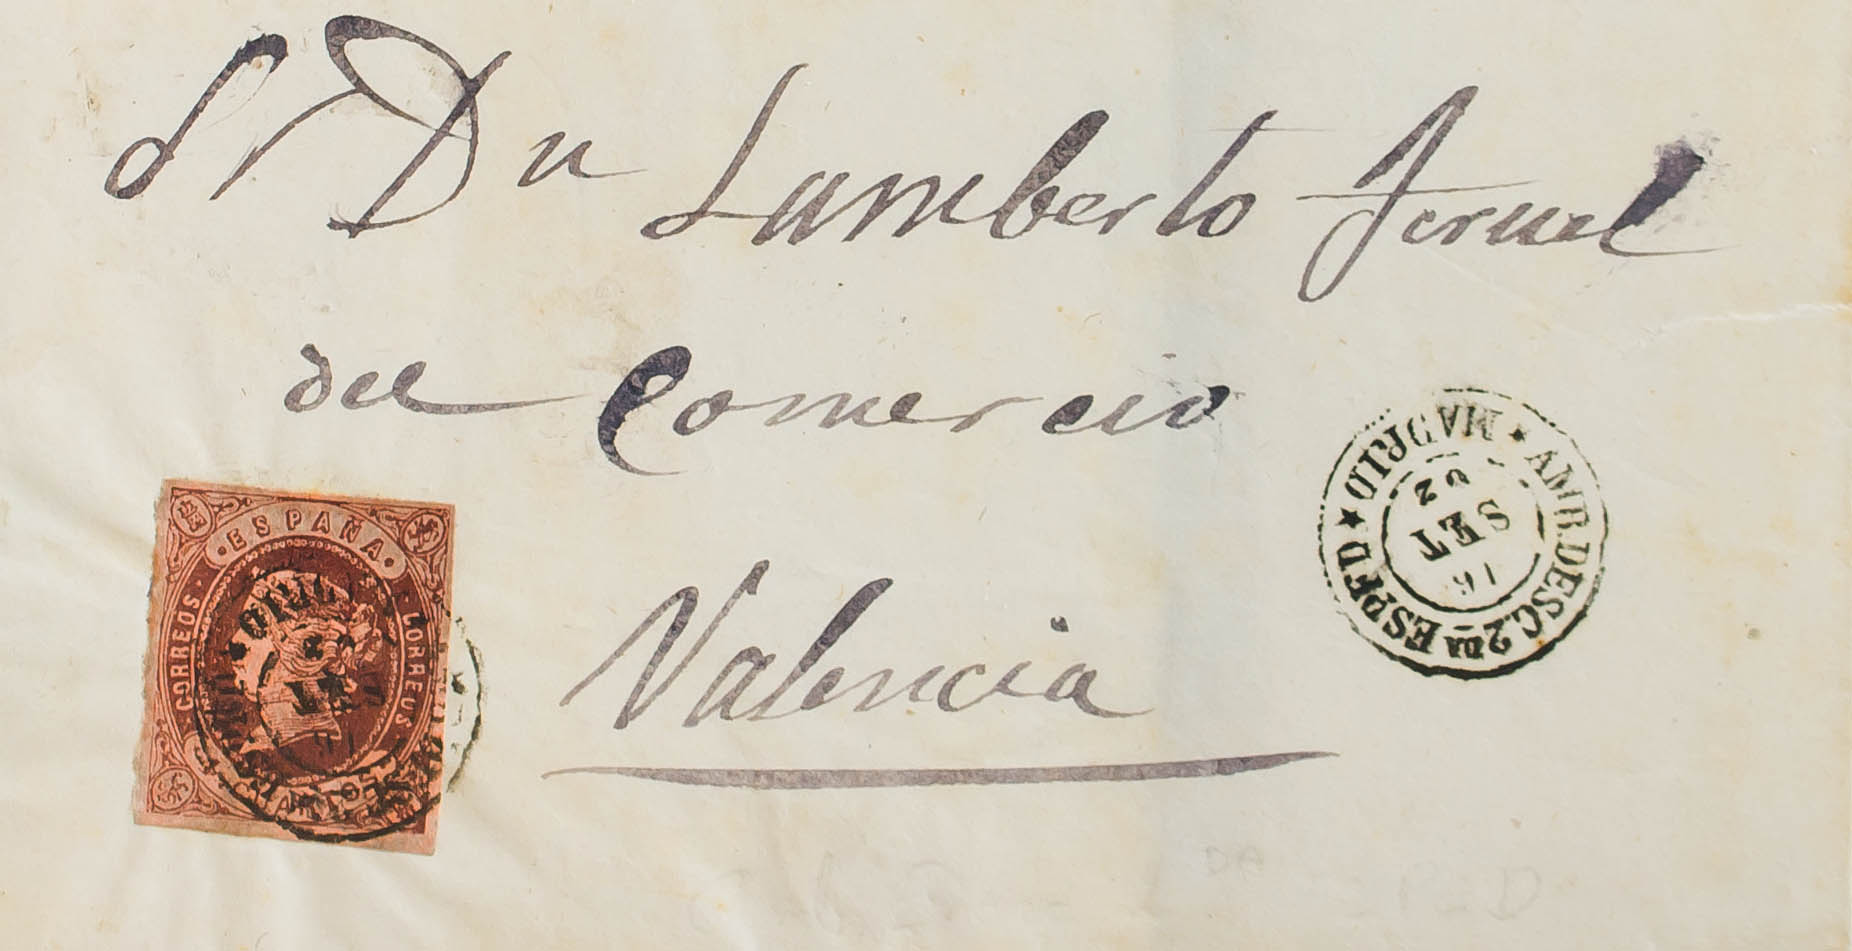 Sr Dn Lamberto Teruel
del Comercio
Valencia
ESPAÑA
CORREOS
AMB.DESC.2DA ESPED
MADRID
16
SET
62